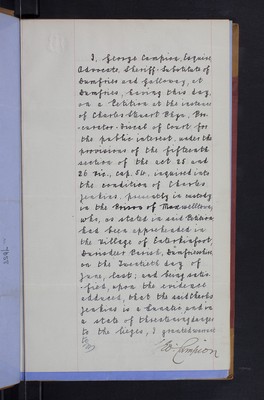 I, George Campion, Esquire,
Advocate, Sheriff-Substitute of
Dumfries and Galloway, at
Dumfries, having this day,
on a Petition at the instance
of Charles Stuart Phyn, Pro-
-curator-Fiscal of Court for
the public interest, under the
provisions of the fifteenth
section of the act 25 and
26 Vic., cap. 54, inquired into
the condition of Charles
Jenkins, presently in custody
in the Prison of Maxwelltown,
who, as stated in said Petition
had been apprehended in
the Village of Enterkinfoot,
Durisdeer Parish, Dumfriesshire,
on the Twentieth day of
June, last; and being satis-
-fied, upon the evidence
adduced, that the said Charles
Jenkins is a Lunatic and in
a state of threatening danger
to the lieges, I granted warrant
to
Geo. Campion